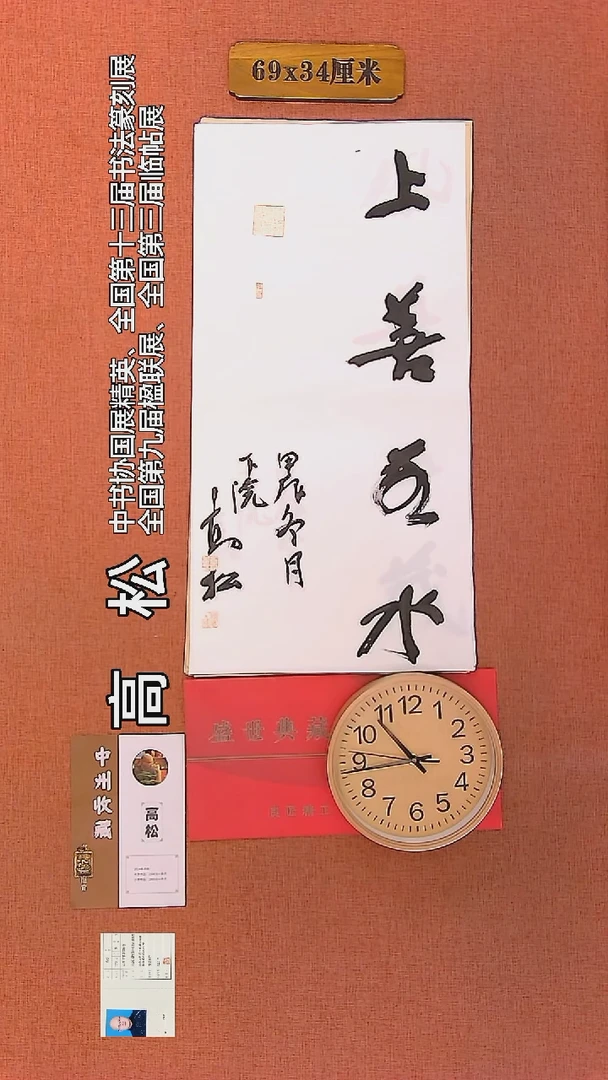 69x34厘米
上善若水
甲辰冬月
下浣
高松
高松
中书协国展精英、全国第十三届书法篆刻展
全国第九届楹联展、全国第三届临帖展
盛世典藏
高松
12
1
2
3
4
5
6
7
8
9
10
11